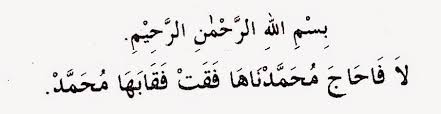 بِسْمِ اللهِ الرَّحْمٰنِ الرَّحِيْمِ.
لاَ فَاحَاجَ مُحَمَّدْنَاهَا فَقَتْ فَقَابَهَا مُحَمَّدْ.